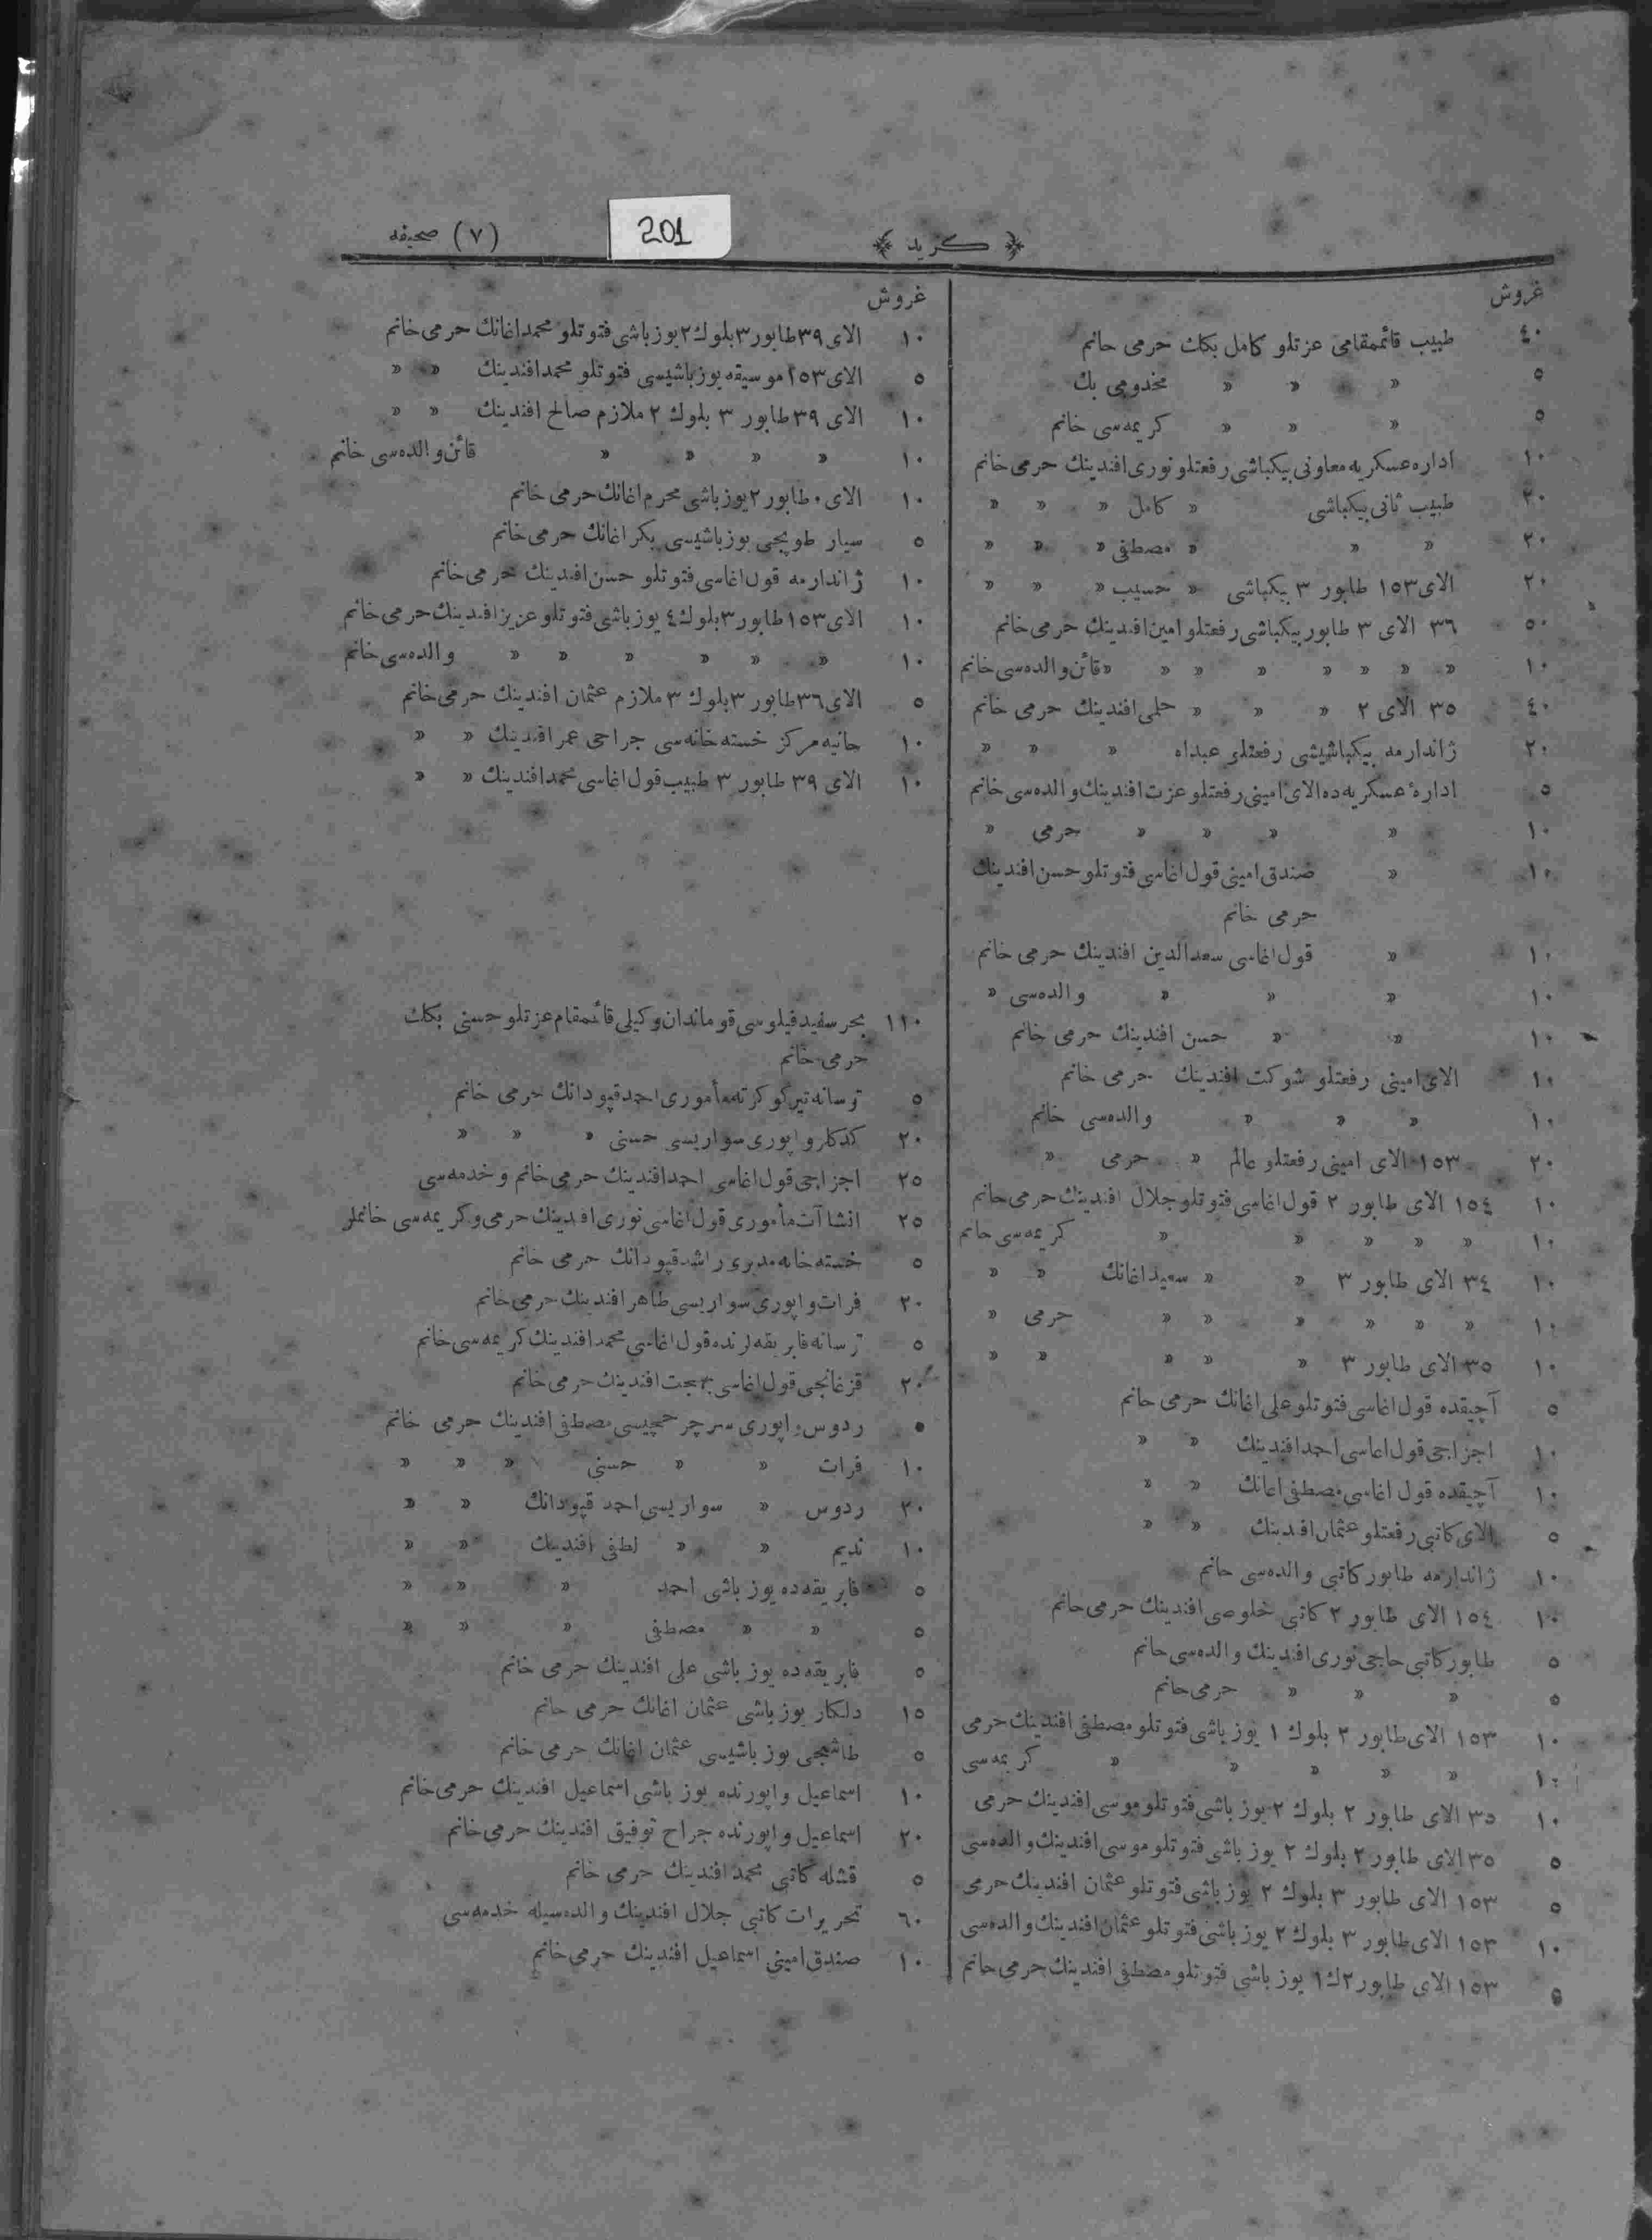 ﴿ كريد ﴾
201
(٧) صحيفه
غروش
٤٠ طبيب قائممقامى عزتلو كامل بكك حرمى خانم
٥ » » » مخدومى بك
٥ » » » كريمه‌سى خانم
١٠ اداره عسكريه معاونى بيكباشى رفعتلو نورى افندينك حرمى خانم
٢٠ طبيب ثانى بيكباشى » كامل » » » »
٢٠ » » » مصطفى » » »
٢٠ الاى ١٥٣ طابور ٣ بيكباشى » حسيب » » »
٥٠ ٣٦ الاى ٣ طابور بيكباشى رفعتلو امين افندينك حرمى خانم
١٠ » » » » » » » » قائن والده‌سى خانم
٤٠ ٣٥ الاى ٢ » » » حلمى افندينك حرمى خانم
٢٠ ژاندارمه بيكباشيسى رفعتلو عبداه » » »
٥ اداره‌ٔ عسكريه ده الاى امينى رفعتلو عزت افندينك والده‌سى خانم
١٠ » » » » حرمى »
١٠ » صندق امينى قول اغاسى فتوتلو حسن افندينك
حرمى خانم
١٠ » قول اغاسى سعدالدين افندينك حرمى خانم
١٠ » » » والده‌سى »
١٠ » » حسن افندينك حرمى خانم
١٠ الاى امينى رفعتلو شوكت افندينك حرمى خانم
١٠ » » » والده‌سى خانم
٢٠ ١٥٣ الاى امينى رفعتلو عالم » حرمى »
١٠ ١٥٤ الاى طابور ٢ قول اغاسى فتوتلو جلال افندينك حرمى خانم
١٠ » » » » » كريمه‌سى خانم
١٠ ٣٤ الاى طابور ٣ » » سعيد اغانك » »
١٠ » » » » » » حرمى »
١٠ ٣٥ الاى طابور ٣ » » » » »
٥ آچيقده قول اغاسى فتوتلو على اغانك حرمى خانم
١٠ اجزاجى قول اغاسى احمد افندينك » »
١٠ آچيقده قول اغاسى مصطفى اغانك » »
٥ الاى كاتبى رفعتلو عثمان افندينك » »
١٠ ژاندارمه طابور كاتبى والده‌سى خانم
١٠ ١٥٤ الاى طابور ٢ كاتبى خلوصى افندينك حرمى خانم
٥ طابور كاتبى حاجى نورى افندينك والده‌سى خانم
٥ » » » حرمى خانم
١٠ ١٥٣ الاى طابور ٣ بلوك ١ يوز باشى فتوتلو مصطفى افندينك حرمى
١٠ » » » » » كريمه‌سى
١٠ ٣٥ الاى طابور ٢ بلوك ٢ يوز باشى فتوتلو موسى افندينك حرمى
٥ ٣٥ الاى طابور ٢ بلوك ٢ يوز باشى فتوتلو موسى افندينك والده‌سى
٥ ١٥٣ الاى طابور ٣ بلوك ٢ يوز باشى فتوتلو عثمان افندينك حرمى
١٠ ١٥٣ الاى طابور ٣ بلوك ٢ يوز باشى فتوتلو عثمان افندينك والده‌سى
٥ ١٥٣ الاى طابور ٢ ك ١ يوز باشى فتوتلو مصطفى افندينك حرمى خانم
غروش
١٠ الاى ٣٩ طابور ٣ بلوك ٢ يوز باشى فتوتلو محمد اغانك حرمى خانم
٥ الاى ١٥٣ موسيقه يوز باشيسى فتوتلو محمد افندينك » »
١٠ الاى ٣٩ طابور ٣ بلوك ٢ ملازم صالح افندينك » »
١٠ » » » » قائن والده‌سى خانم
١٠ الاى ٠ طابور ٢ يوز باشى محرم اغانك حرمى خانم
٥ سيار طوپجى يوز باشيسى بكر اغانك حرمى خانم
١٠ ژاندارمه قول اغاسى فتوتلو حسن افندينك حرمى خانم
١٠ الاى ١٥٣ طابور ٣ بلوك ٤ يوز باشى فتوتلو عزيز افندينك حرمى خانم
١٠ » » » » » » والده‌سى خانم
٥ الاى ٣٦ طابور ٣ بلوك ٣ ملازم عثمان افندينك حرمى خانم
١٠ حانيه مركز خسته خانه‌سى جراحى عمر افندينك » »
١٠ الاى ٣٩ طابور ٣ طبيب قول اغاسى محمد افندينك » »
١١٠ بحر سفيد فيلوسى قومندان وكيلى قائممقام عزتلو حسنى بكك
حرمى خانم
٥ ترسانه تيركو كرته مأمورى احمد قپودانك حرمى خانم
٢٠ واپورى سواريسى حسنى » » »
٢٥ اجزاجى قول اغاسى احمد افندينك حرمى خانم و خدمه‌سى
٢٥ انشاآت مأمورى قول اغاسى نورى افندينك حرمى و كريمه‌سى خانملر
٥ خسته خانه مديرى راشد قپودانك حرمى خانم
٢٠ فرات واپورى سواريسى طاهر افندينك حرمى خانم
٥ ترسانه فابريقه لرنده قول اغاسى محمد افندينك كريمه‌سى خانم
٢٠ قزغانجى قول اغاسى بهجت افندينك حرمى خانم
٥ ردوس واپورى سرچرخجيسى مصطفى افندينك حرمى خانم
١٠ فرات » » حسنى » » »
٣٠ ردوس » سواريسى احمد قپودانك » »
١٠ نديم » » لطفى افندينك » »
٥ فابريقه ده يوز باشى احمد » » »
٥ » » مصطفى » » »
٥ فابريقه ده يوز باشى على افندينك حرمى خانم
١٥ دلكار يوز باشى عثمان اغانك حرمى خانم
٥ طاشجى يوز باشيسى عثمان اغانك حرمى خانم
١٠ اسماعيل واپورنده يوز باشى اسماعيل افندينك حرمى خانم
٢٠ اسماعيل واپورنده جراح توفيق افندينك حرمى خانم
٥ قشله كاتبى محمد افندينك حرمى خانم
٦٠ تحريرات كاتبى جلال افندينك والده‌سيله خدمه‌سى
١٠ صندق امينى اسماعيل افندينك حرمى خانم